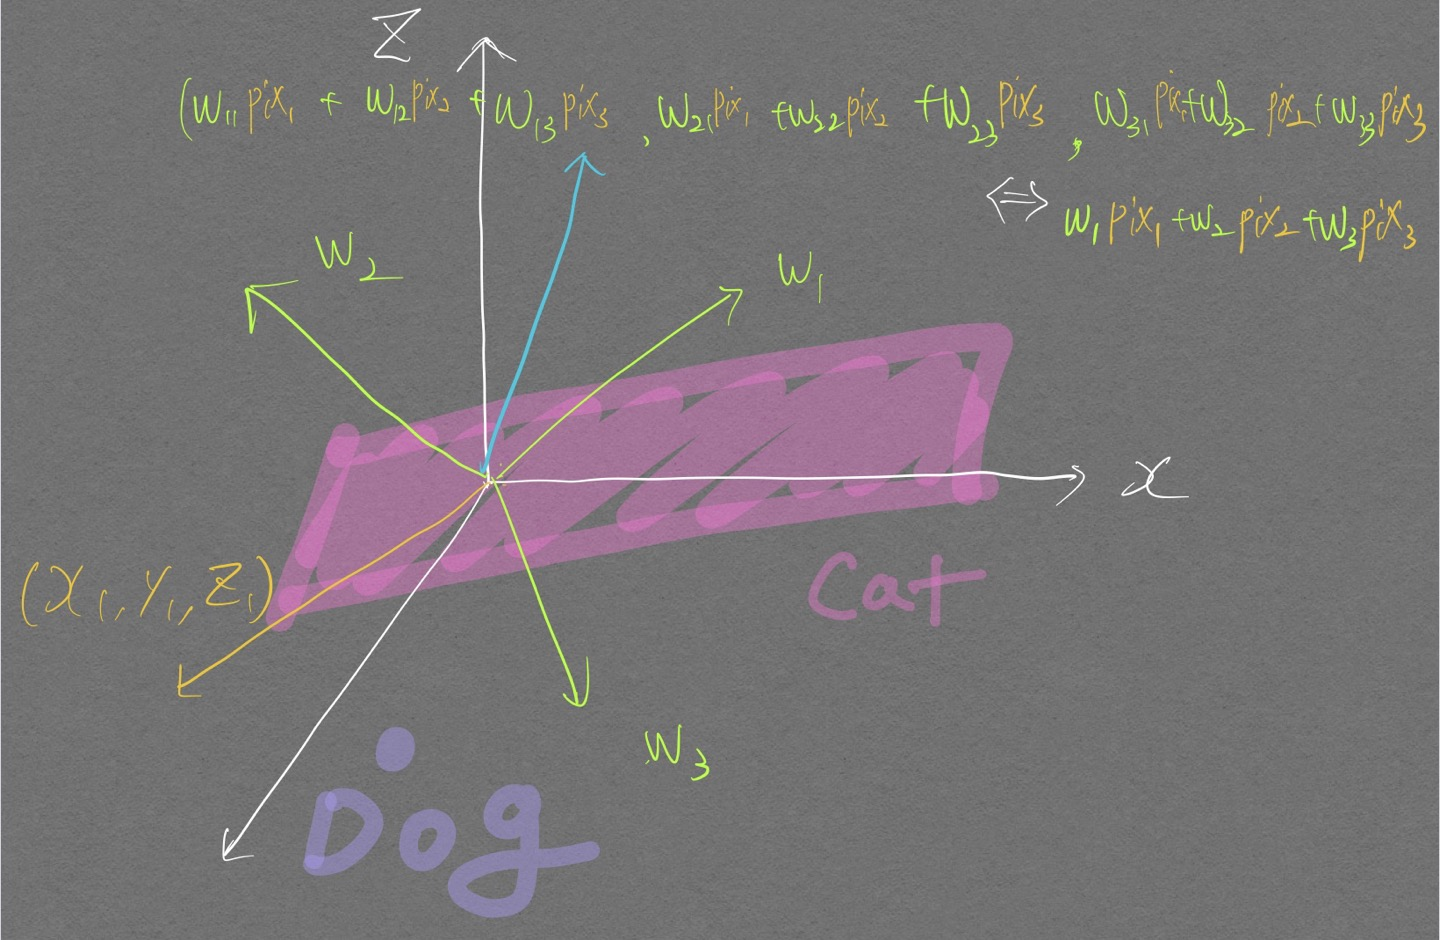 Z
(W₁₁pix₁ + W₁₂pix₂ + W₁₃pix₃, W₂₁pix₁ + W₂₂pix₂ + W₂₃pix₃, W₃₁pix₁ + W₃₂pix₂ + W₃₃pix₃
⇔ W₁pix₁ + W₂pix₂ + W₃pix₃
W₂
W₁
x
(X₁, Y₁, Z₁)
Cat
W₃
Dog